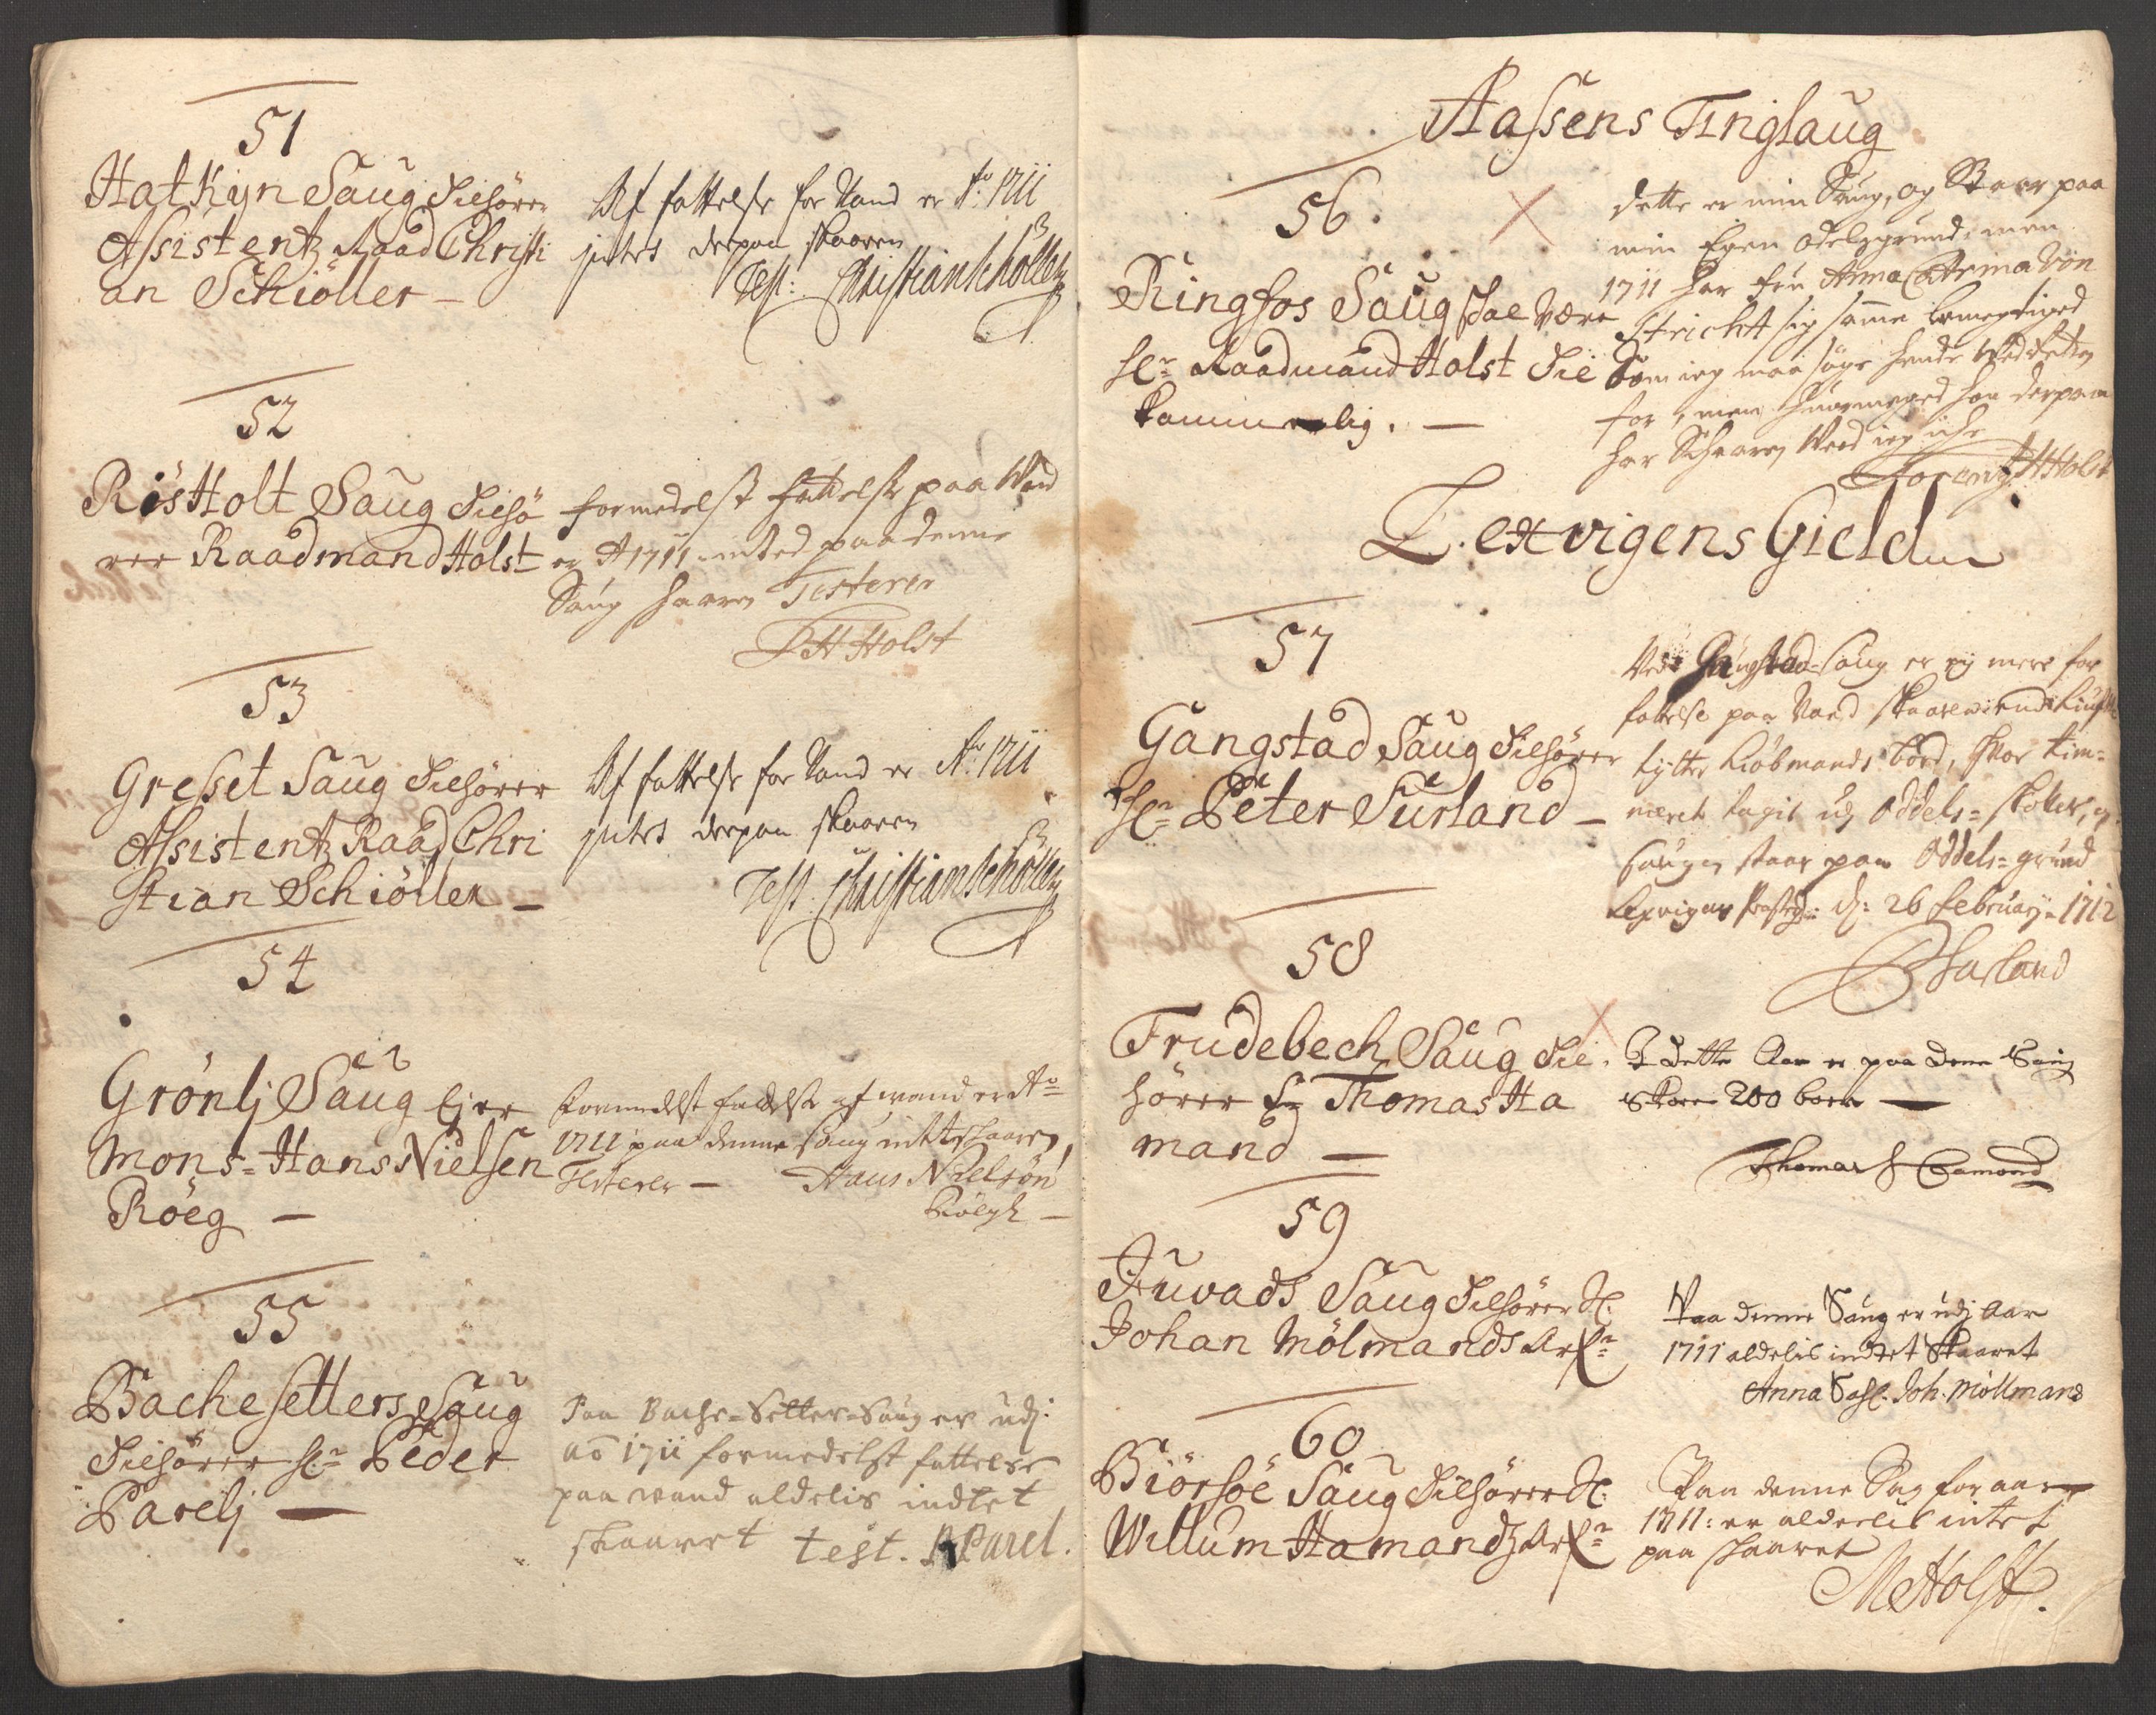 51
Hatkyn Saug Tilhører
Assistentz Raad Christi
an Schiöller -
Af fattelse for Vand er Ao: 1711
intet derpaa skaaren
Test: Christian Schöller
52
Risholt Saug Tilhö
rer Raadmand Holst
formedelst fattelse paa Vand
er Ao 1711 inted paa denne
Saug skaaren Testerer
LHHolst
53
Gresset Saug Tilhører
Assistentz Raad Chri
stian Schiöller -
Af fattelse for Vand er Ao: 1711
intet derpaa skaaren
Test: Christian Schöller
54
Grönlj Saug Ejer
Mons= Hans Nielsen
Röeg -
Formedelst fattelse af wand er Ao=
1711 paa denne saug intet skaaren,
Testerer - Hans Nielsön
55
Bachesetters Saug
Tilhører Sl: Peder
Parelj -
Paa Bache=Setter=Saug er udj:
ao 1711 formedelst fattelse
paa wand aldelis indtet
skaaret test. PParel.
Aassens Tinglaug
56.
Ringfos Saug skal være
Sl: Raadmand Holst Til
kommelig. -
dette er min Saug, og Staar paa
min Egen odelsgrund, men
1711 har fru Anna Catrina Von
Stricht sig samme bemegtiget
Som ieg maa söge hende Ved Retten
for, men huormeget hon derpaa
har Schaaren Veed ieg iche
Lorentz HHolst
Lexvigens Gield
57
Gangstad Saug Tilhører
Sl: Peter Surland -
Ved Gangstad=Saug er ej mere for
fattelse paa Vand skaaren end
tylter Kiøbmands bord, huor tim=
meret tagit udj Oddels=skoven, og
Saugen staar paa Oddels=grund
Lexvigens Præstegi: d: 26 february 1712
Surland
58
Frudebech Saug Til
hører Sr Thomas Ha
mand -
I dette Aar er paa denne Saug
skaaren 200 bord -
Thomas Hamond
59
Juvads Saug Tilhører Sl:
Johan Mölmands Arf:
Paa denne Saug er udj Aar
1711 aldelis indtet Skaaret
Anna Sahl. Joh. Möllmans
60
Biörsöe Saug Tilhører Sl:
Willum Hamandz Arf:
Paa denne Sag for aar
1711: er alderlis intet
paa skaaret
MHolst.